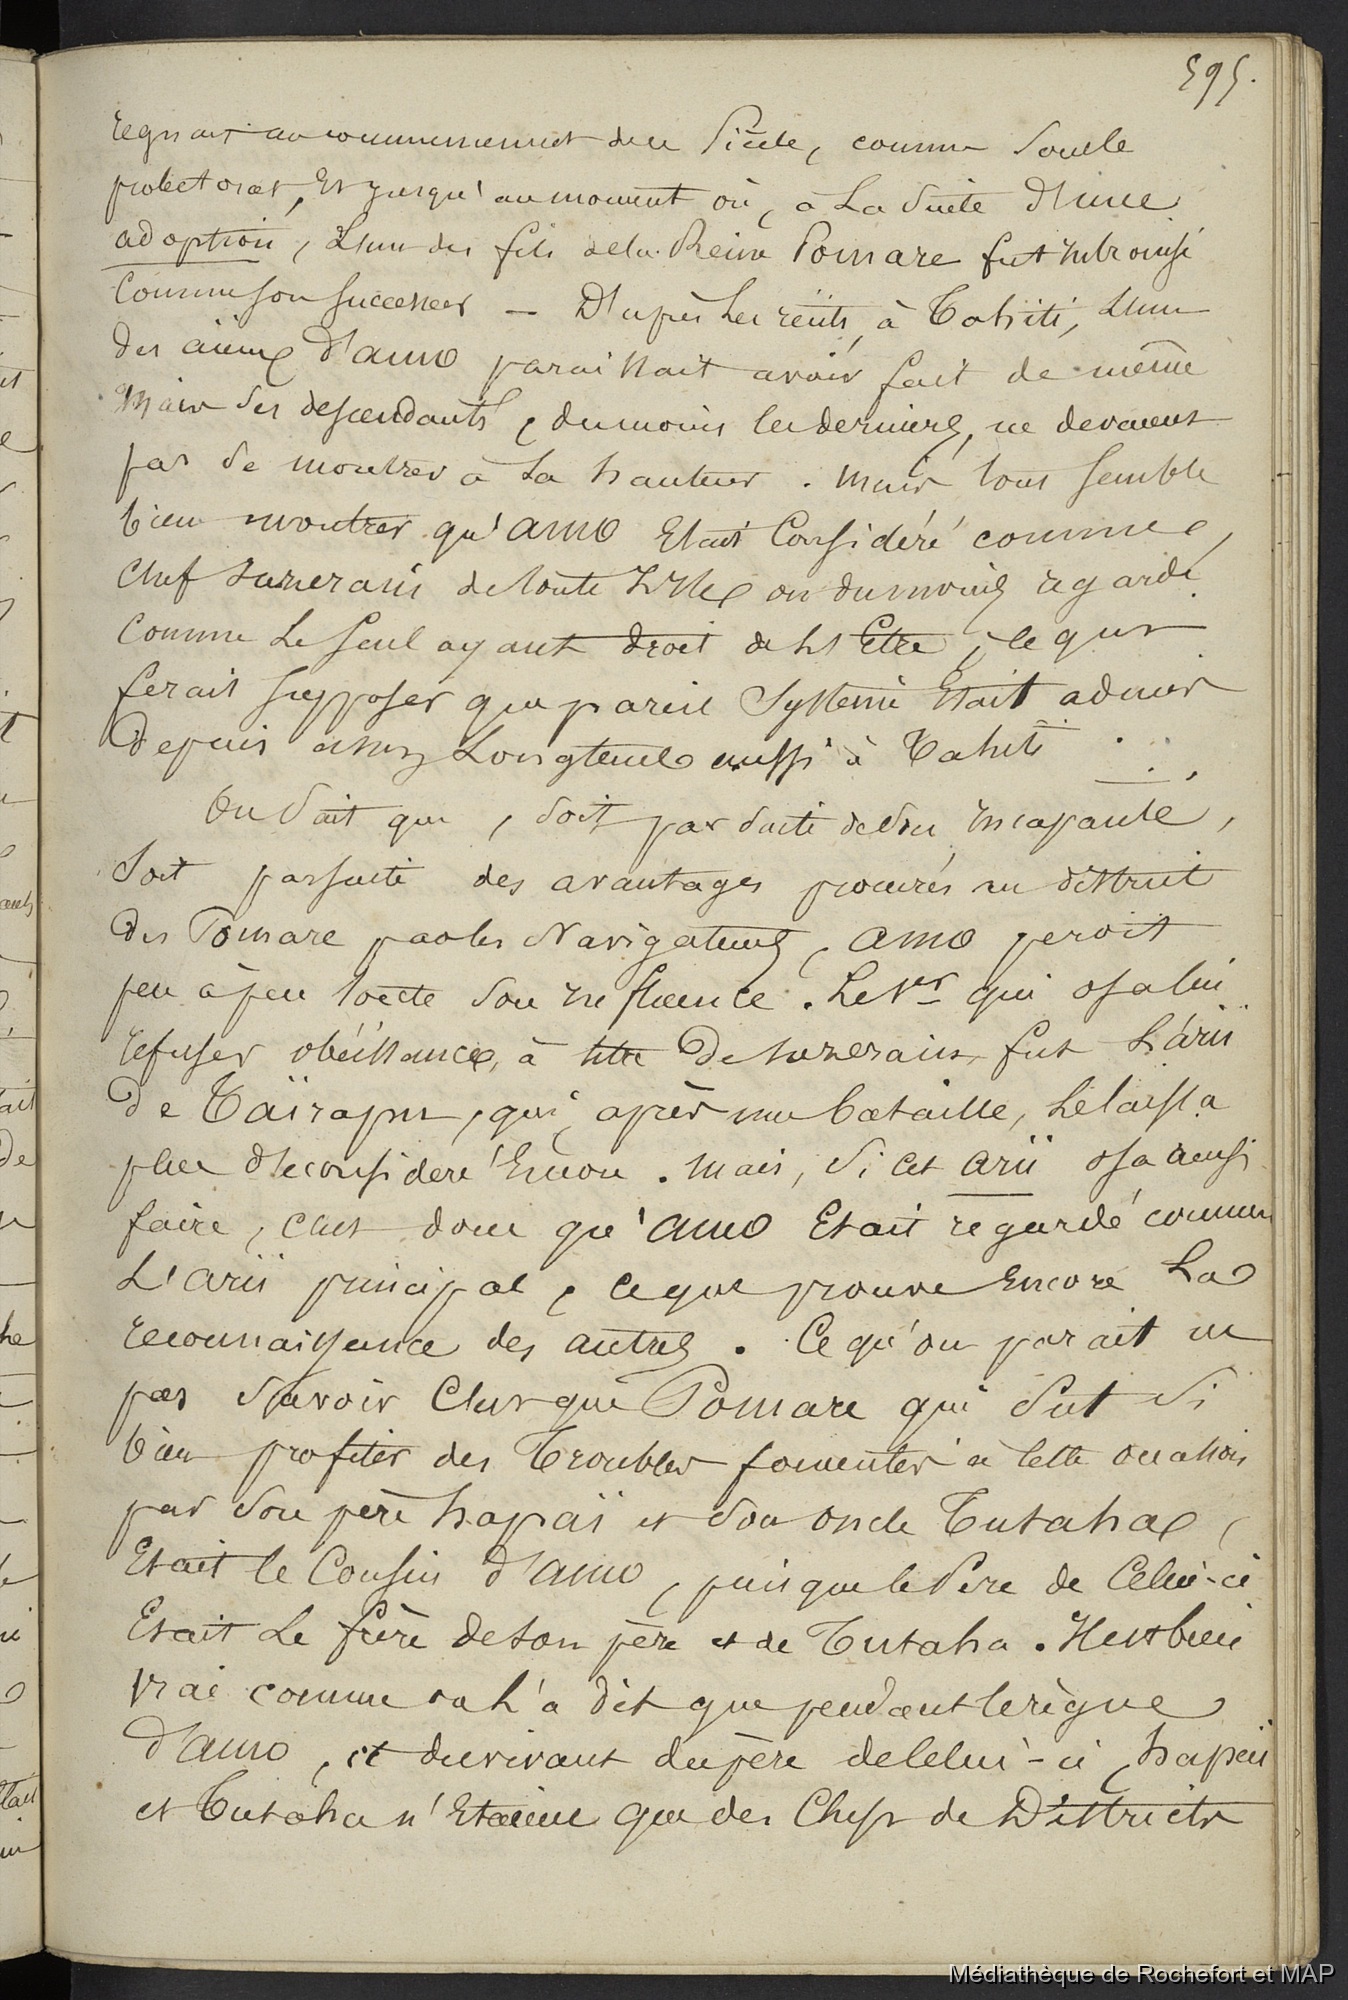 595.
regnait au commencement du Siècle, comme Sous le
protectorat, Et jusqu'au moment où, à La Suite d'une
adoption, L'un des fils de la Reine Pomare fut intronisé
Comme son successeur — D'après Les récits, à Tahiti, L'un
des aïeux d'amo paraissait avoir fait de même
Mais Ses descendants, du moins les derniers, ne devaient
pas Se montrer à La hauteur. Mais tout semble
bien montrer qu'amo Etait Considéré comme
Chef Suzerain de toute L'Ile, ou du moins regardé
Comme Le Seul ayant droit de L'Etre, ce qui
ferait supposer que pareil Système Etait admis
Depuis assez Longtemps aussi à Tahiti
On Sait que, Soit par Suite de Son incapacité,
Soit par Suite des avantages procurés au district
Des Pomare par les Navigateurs, amo perdit
peu à peu toute Son influence. Le 1er qui osa lui
refuser obéissance, à titre De Suzerain, fut L'arii
De Taïrapu, qui, après une bataille, Le laissa
plus déconsidéré Encore. Mais, Si cet arii osa ainsi
faire, C'est donc qu'amo Etait regardé comme
L'arii principal, ce que prouve Encore La
reconnaissance des autres. Ce qu'on parait ne
pas Savoir C'est que Pomare qui Sut Si
bien profiter des Troubles fomentés à cette occasion
par Son père hapaï et Son oncle Tutaha,
Etait le Cousin d'amo, puisque le Père de Celui-ci
Etait Le frère de son père et de Tutaha. Il est bien
Vrai comme on L'a dit que pendant le règne
d'amo, et du vivant du père de Celui-ci, hapaï
et Tutaha n'Etaient que des Chefs de Districts
Médiathèque de Rochefort et MAP